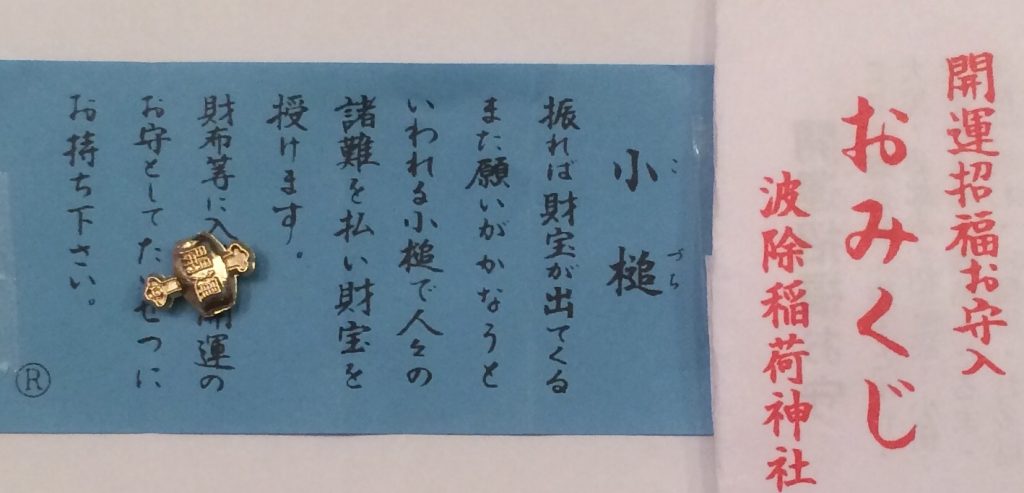 開運招福お守入
おみくじ
波除稲荷神社
小槌
こづち
振れば財宝が出てくる
また願いがかなうと
いわれる小槌で人々の
諸難を払い財宝を
授けます。
財布等に入 開運の
お守としてた せつに
お持ち下さい。
Ⓡ
開運